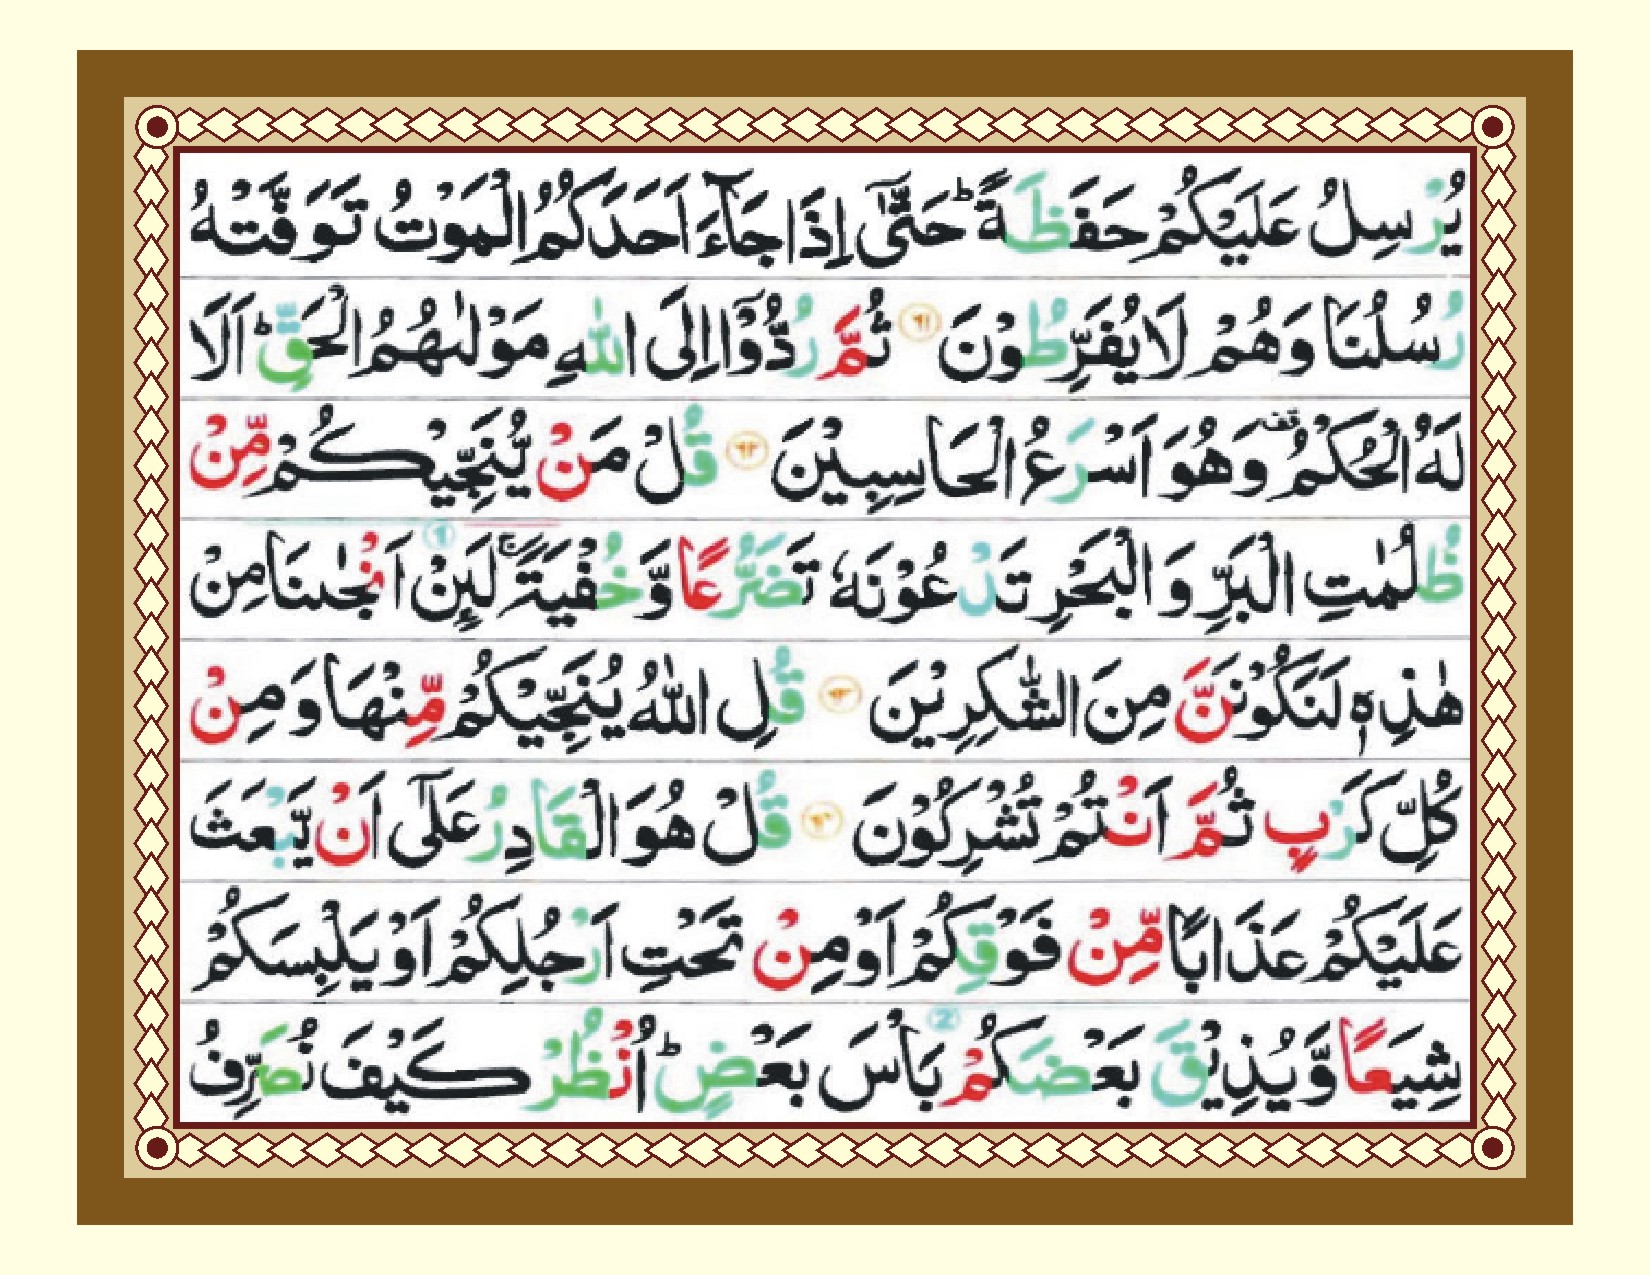 یُرْسِلُ عَلَیْكُمْ حَفَظَةً ؕ حَتّٰۤی اِذَا جَآءَ اَحَدَكُمُ الْمَوْتُ تَوَفَّتْهُ
رُسُلُنَا وَهُمْ لَا یُفَرِّطُوْنَ ﴿۶۱﴾ ثُمَّ رُدُّوْۤا اِلَی اللّٰهِ مَوْلٰىهُمُ الْحَقِّ ؕ اَلَا
لَهُ الْحُكْمُ ۫ وَهُوَ اَسْرَعُ الْحَاسِبِیْنَ ﴿۶۲﴾ قُلْ مَنْ یُّنَجِّیْكُمْ مِّنْ
ظُلُمٰتِ الْبَرِّ وَ الْبَحْرِ تَدْعُوْنَهٗ تَضَرُّعًا وَّخُفْیَةً ۚ لَىِٕنْ اَنْجٰىنَا مِنْ
هٰذِهٖ لَنَكُوْنَنَّ مِنَ الشّٰكِرِیْنَ ﴿۶۳﴾ قُلِ اللّٰهُ یُنَجِّیْكُمْ مِّنْهَا وَ مِنْ
كُلِّ كَرْبٍ ثُمَّ اَنْتُمْ تُشْرِكُوْنَ ﴿۶۴﴾ قُلْ هُوَ الْقَادِرُ عَلٰۤی اَنْ یَّبْعَثَ
عَلَیْكُمْ عَذَابًا مِّنْ فَوْقِكُمْ اَوْ مِنْ تَحْتِ اَرْجُلِكُمْ اَوْ یَلْبِسَكُمْ
شِیَعًا وَّیُذِیْقَ بَعْضَكُمْ بَاْسَ بَعْضٍ ؕ اُنْظُرْ كَیْفَ نُصَرِّفُ